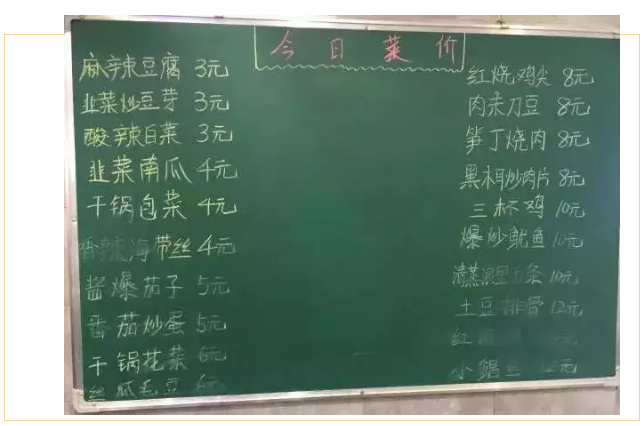 今日菜价
麻辣豆腐 3元
韭菜炒豆芽 3元
酸辣白菜 3元
韭菜南瓜 4元
干锅包菜 4元
香辣海带丝 4元
酱爆茄子 5元
番茄炒蛋 5元
干锅花菜 6元
丝瓜毛豆 6元
红烧鸡尖 8元
肉末刀豆 8元
笋丁烧肉 8元
黑木耳炒肉片 8元
三杯鸡 10元
爆炒鱿鱼 10元
清蒸 条 10元
土豆排骨 12元
红
小鲳 元